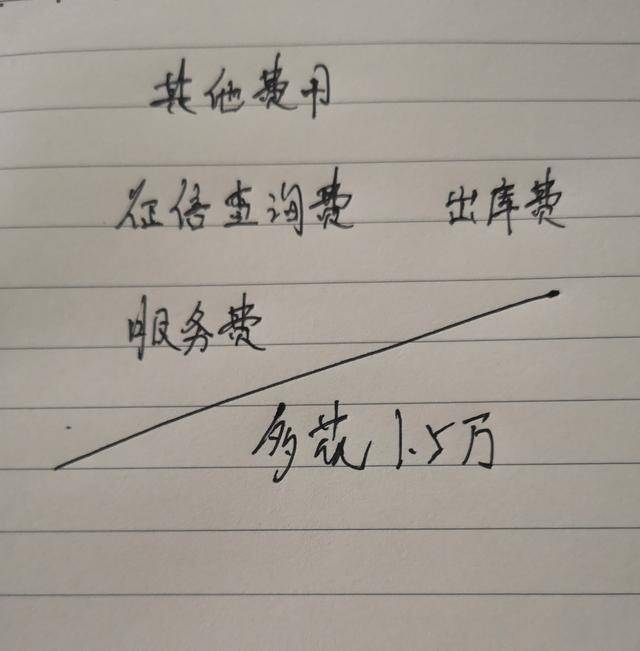 其他费用
征信查询费 出库费
服务费
多花1.5万